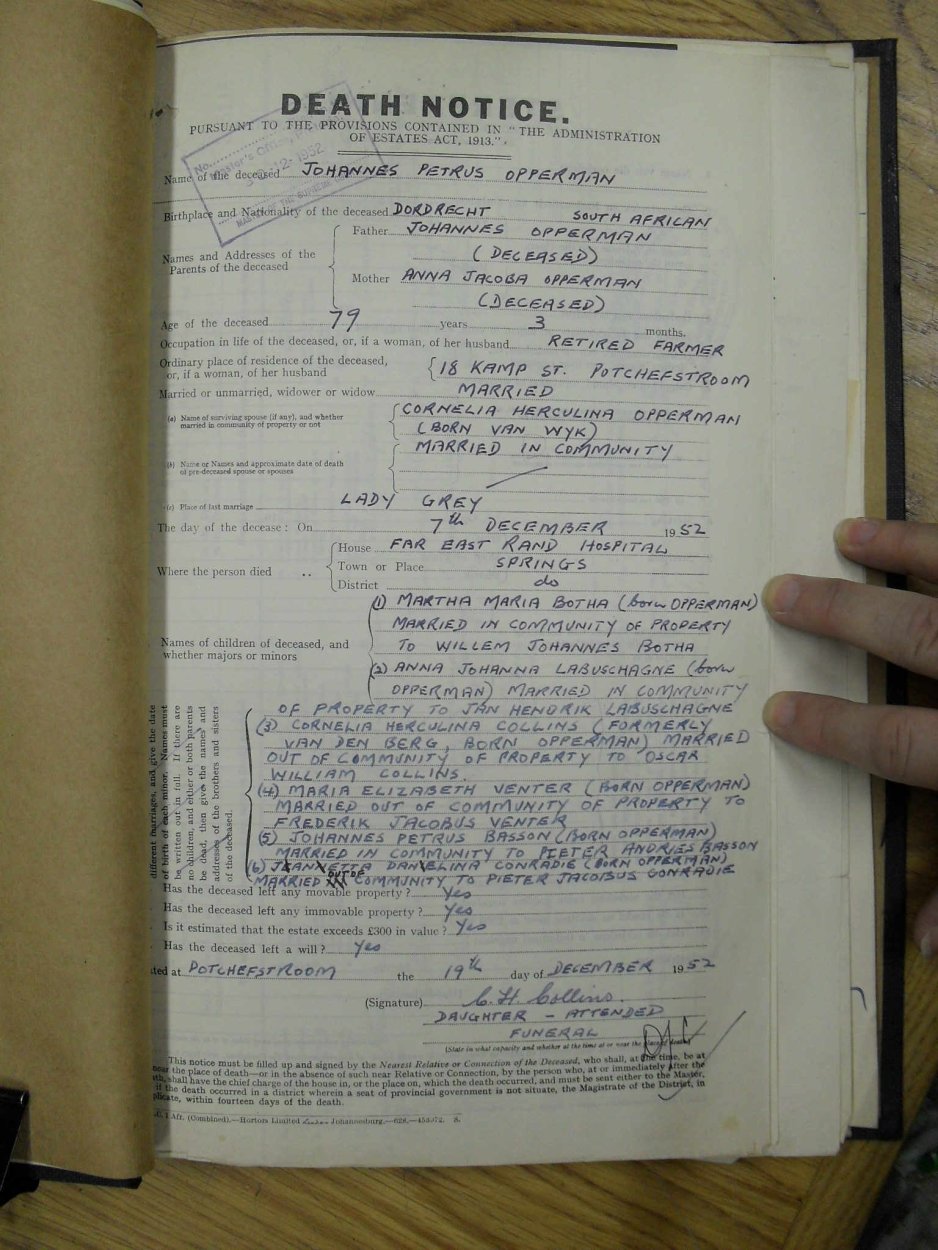 DEATH NOTICE.
PURSUANT TO THE PROVISIONS CONTAINED IN "THE ADMINISTRATION
OF ESTATES ACT, 1913."
No.
Master's Office,
-12-1952
MASTER OF THE SUPREME
Name of the deceased JOHANNES PETRUS OPPERMAN
Birthplace and Nationality of the deceased DORDRECHT SOUTH AFRICAN
Names and Addresses of the Parents of the deceased
Father JOHANNES OPPERMAN
(DECEASED)
Mother ANNA JACOBA OPPERMAN
(DECEASED)
Age of the deceased 79 years 3 months.
Occupation in life of the deceased, or, if a woman, of her husband RETIRED FARMER
Ordinary place of residence of the deceased,
or, if a woman, of her husband
18 KAMP ST. POTCHEFSTROOM
Married or unmarried, widower or widow MARRIED
(a) Name of surviving spouse (if any), and whether
married in community of property or not
CORNELIA HERCULINA OPPERMAN
(BORN VAN WYK)
MARRIED IN COMMUNITY
(b) Name or Names and approximate date of death
of pre-deceased spouse or spouses
(c) Place of last marriage LADY GREY
The day of the decease: On 7th DECEMBER 1952
Where the person died ..
House FAR EAST RAND HOSPITAL
Town or Place SPRINGS
District do
Names of children of deceased, and
whether majors or minors
(1) MARTHA MARIA BOTHA (born OPPERMAN)
MARRIED IN COMMUNITY OF PROPERTY
TO WILLEM JOHANNES BOTHA
(2) ANNA JOHANNA LABUSCHAGNE (born
OPPERMAN) MARRIED IN COMMUNITY
OF PROPERTY TO JAN HENDRIK LABUSCHAGNE
(3) CORNELIA HERCULINA COLLINS (FORMERLY
VAN DEN BERG, BORN OPPERMAN) MARRIED
OUT OF COMMUNITY OF PROPERTY TO OSCAR
WILLIAM COLLINS.
(4) MARIA ELIZABETH VENTER (BORN OPPERMAN)
MARRIED OUT OF COMMUNITY OF PROPERTY TO
FREDERIK JACOBUS VENTER
(5) JOHANNES PETRUS BASSON (BORN OPPERMAN)
MARRIED IN COMMUNITY TO PIETER ANDRIES BASSON
(6) JEANNETTA DANIELINA CONRADIE (BORN OPPERMAN)
MARRIED OUT OF COMMUNITY TO PIETER JACOBUS CONRADIE
different marriages, and give the date
of birth of each minor. Names must
be written out in full. If there are
no children, and either or both parents
be dead, then give the names and
addresses of the brothers and sisters
of the deceased.
Has the deceased left any movable property? Yes
Has the deceased left any immovable property? Yes
Is it estimated that the estate exceeds £300 in value? Yes
Has the deceased left a will? Yes
ted at POTCHEFSTROOM the 19th day of DECEMBER 1952
(Signature) C. H. Collins.
DAUGHTER - ATTENDED
FUNERAL
(State in what capacity and whether at the time at or near the place of death)
This notice must be filled up and signed by the Nearest Relative or Connection of the Deceased, who shall, at the time, be at
near the place of death—or in the absence of such near Relative or Connection, by the person who, at or immediately after the
th, shall have the chief charge of the house in, or the place on, which the death occurred, and must be sent either to the Master,
if the death occurred in a district wherein a seat of provincial government is not situate, the Magistrate of the District, in
plicate, within fourteen days of the death.
1 Aft. (Combined).—Hortors Limited Johannesburg.—628.—453072. S.